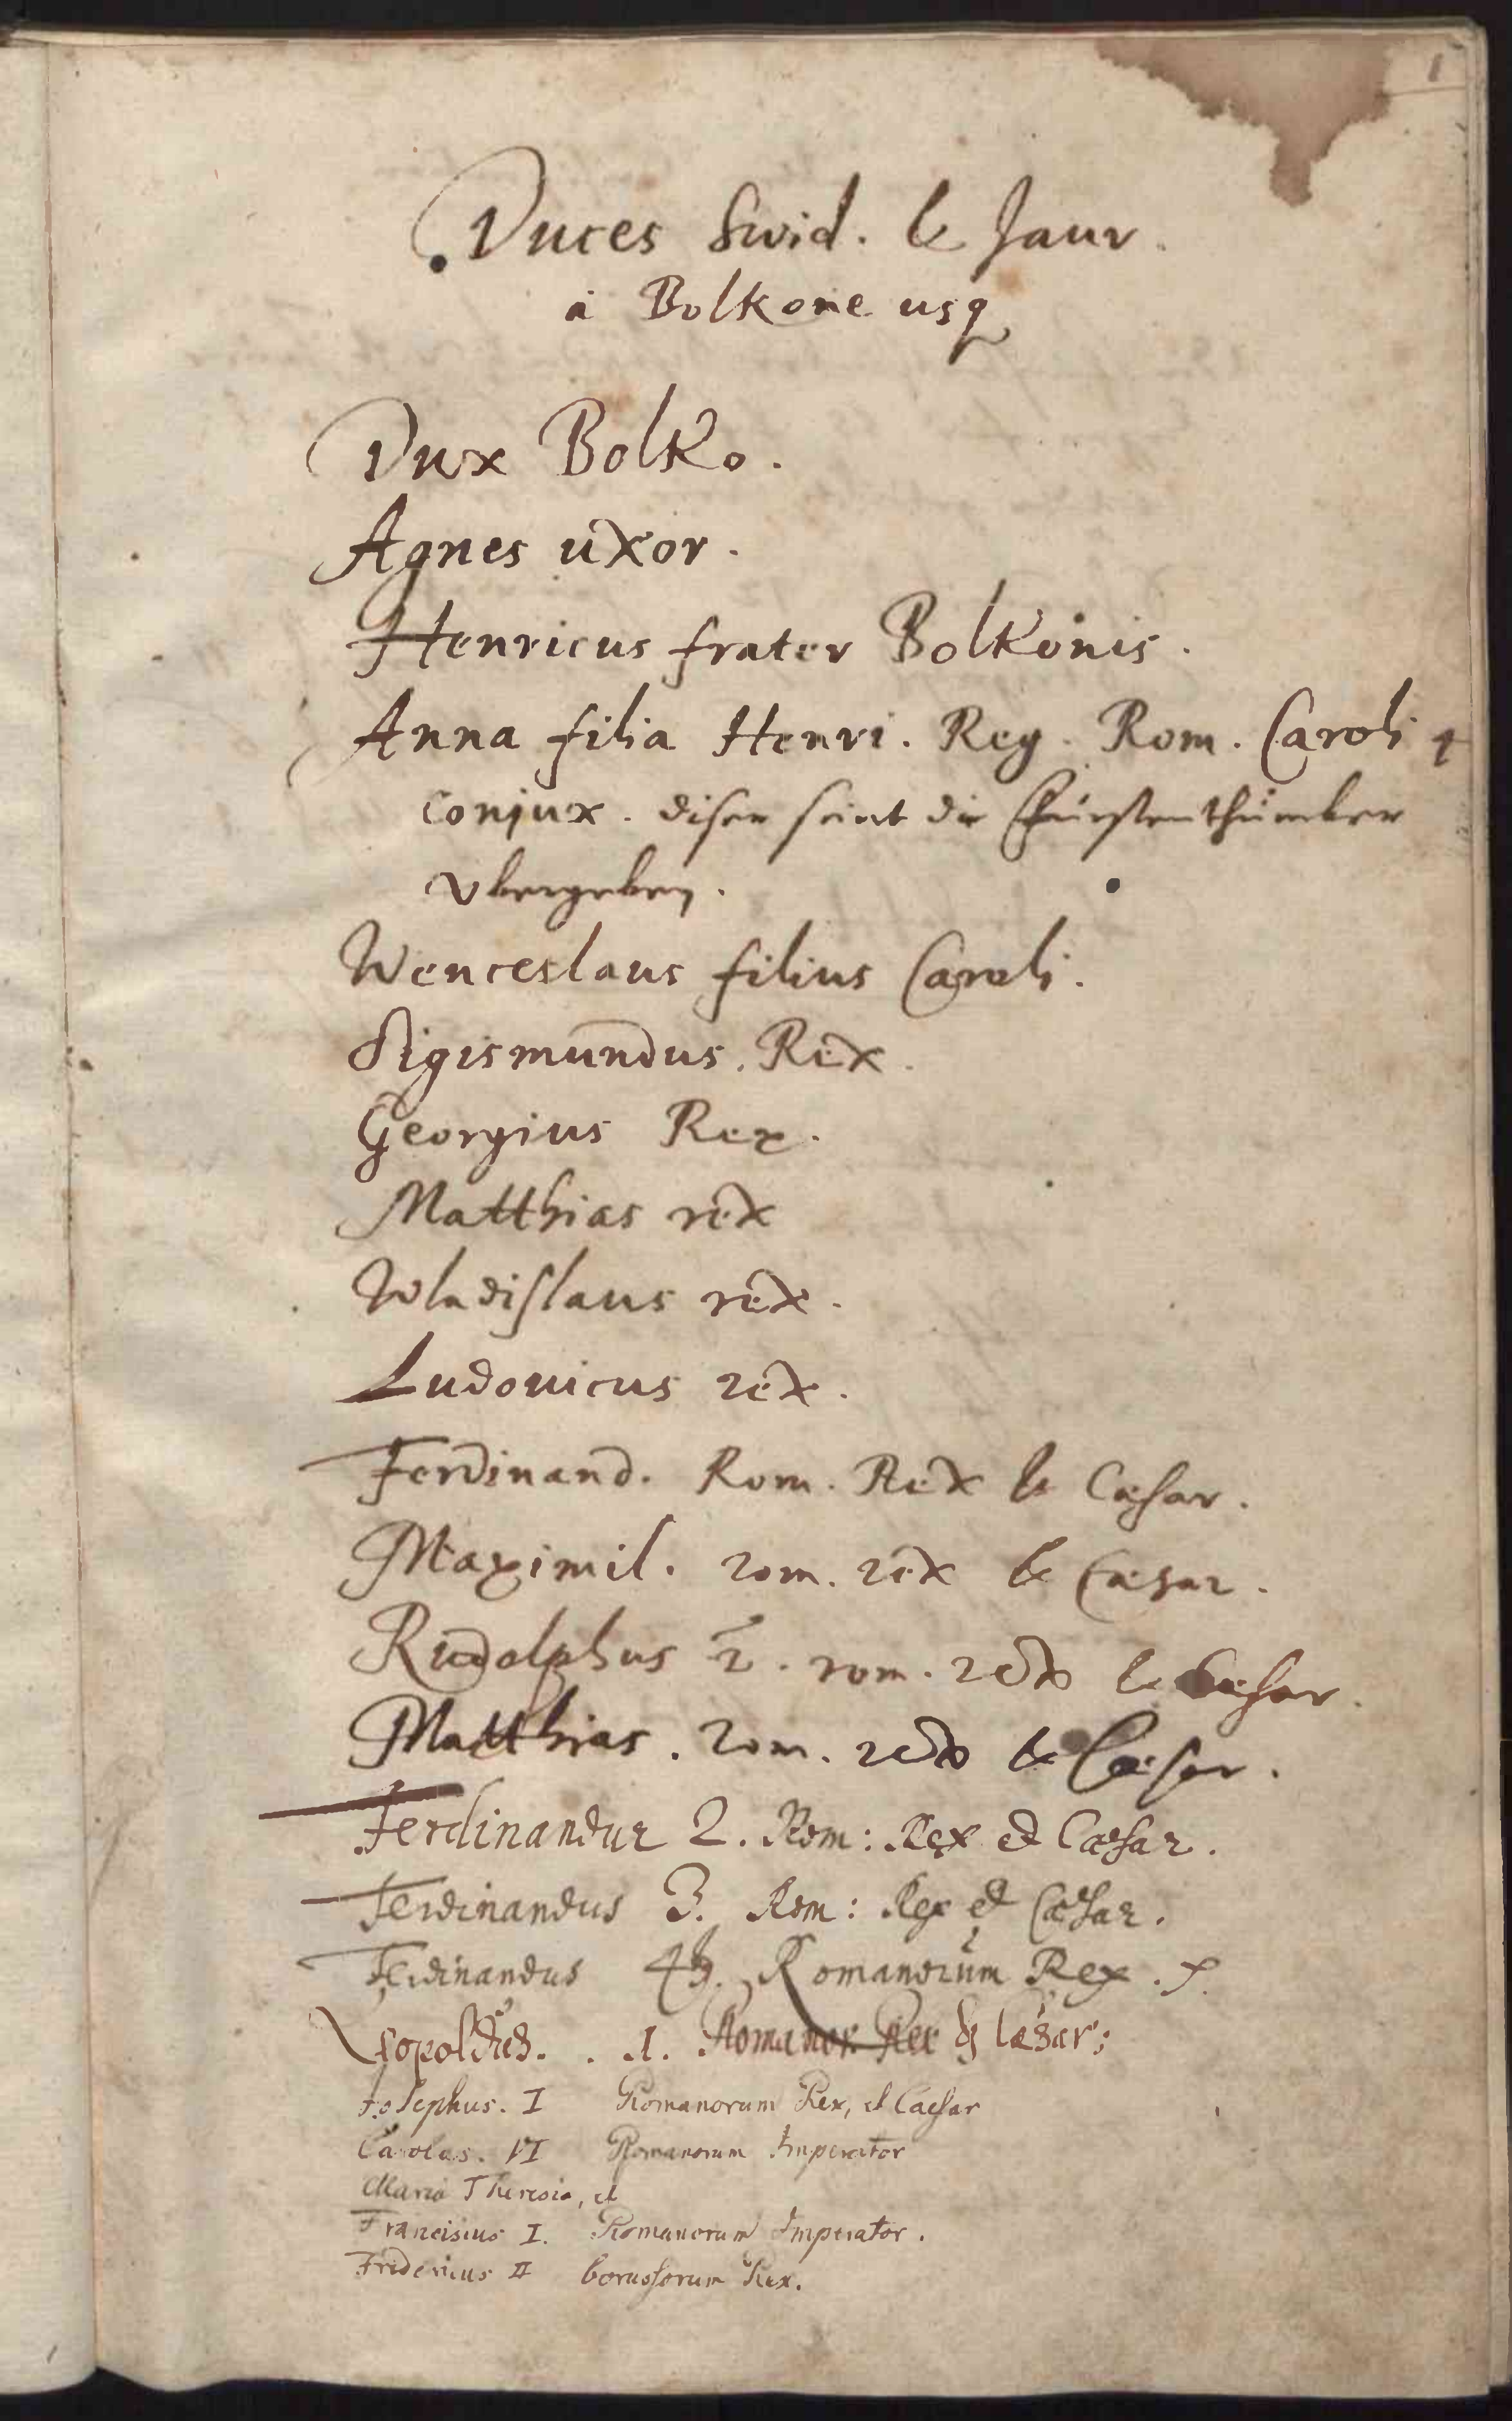 1
Duces Swid. & Jaur.
à Bolkone usq
Dux Bolko.
Agnes uxor.
Henricus frater Bolkonis.
Anna filia Henri. Reg. Rom. Caroli 4
conjux. disen seint die Fürstenthümber
vbergeben.
Wenceslaus filius Caroli.
Sigismundus. Rex.
Georgius Rex.
Matthias rex
Wladislaus rex.
Ludouicus rex.
Ferdinand. Rom. Rex & Cæsar.
Maximil. rom. rex & Cæsar.
Rudolphus 2. rom. rex & Cæsar.
Matthias. rom. rex & Cæsar.
Ferdinandus 2. Rom: Rex et Cæsar.
Ferdinandus 3. Rom: Rex et Cæsar.
Ferdinandus 4. Romanorum Rex.
Leopoldus. . 1. Romanor. Rex & Cæsar;
Josephus. I Romanorum Rex, et Caesar
Carolus. VI Romanorum Imperator
Maria Theresia, et
Franciscus I. Romanorum Imperator.
Fridericus II borussorum Rex.